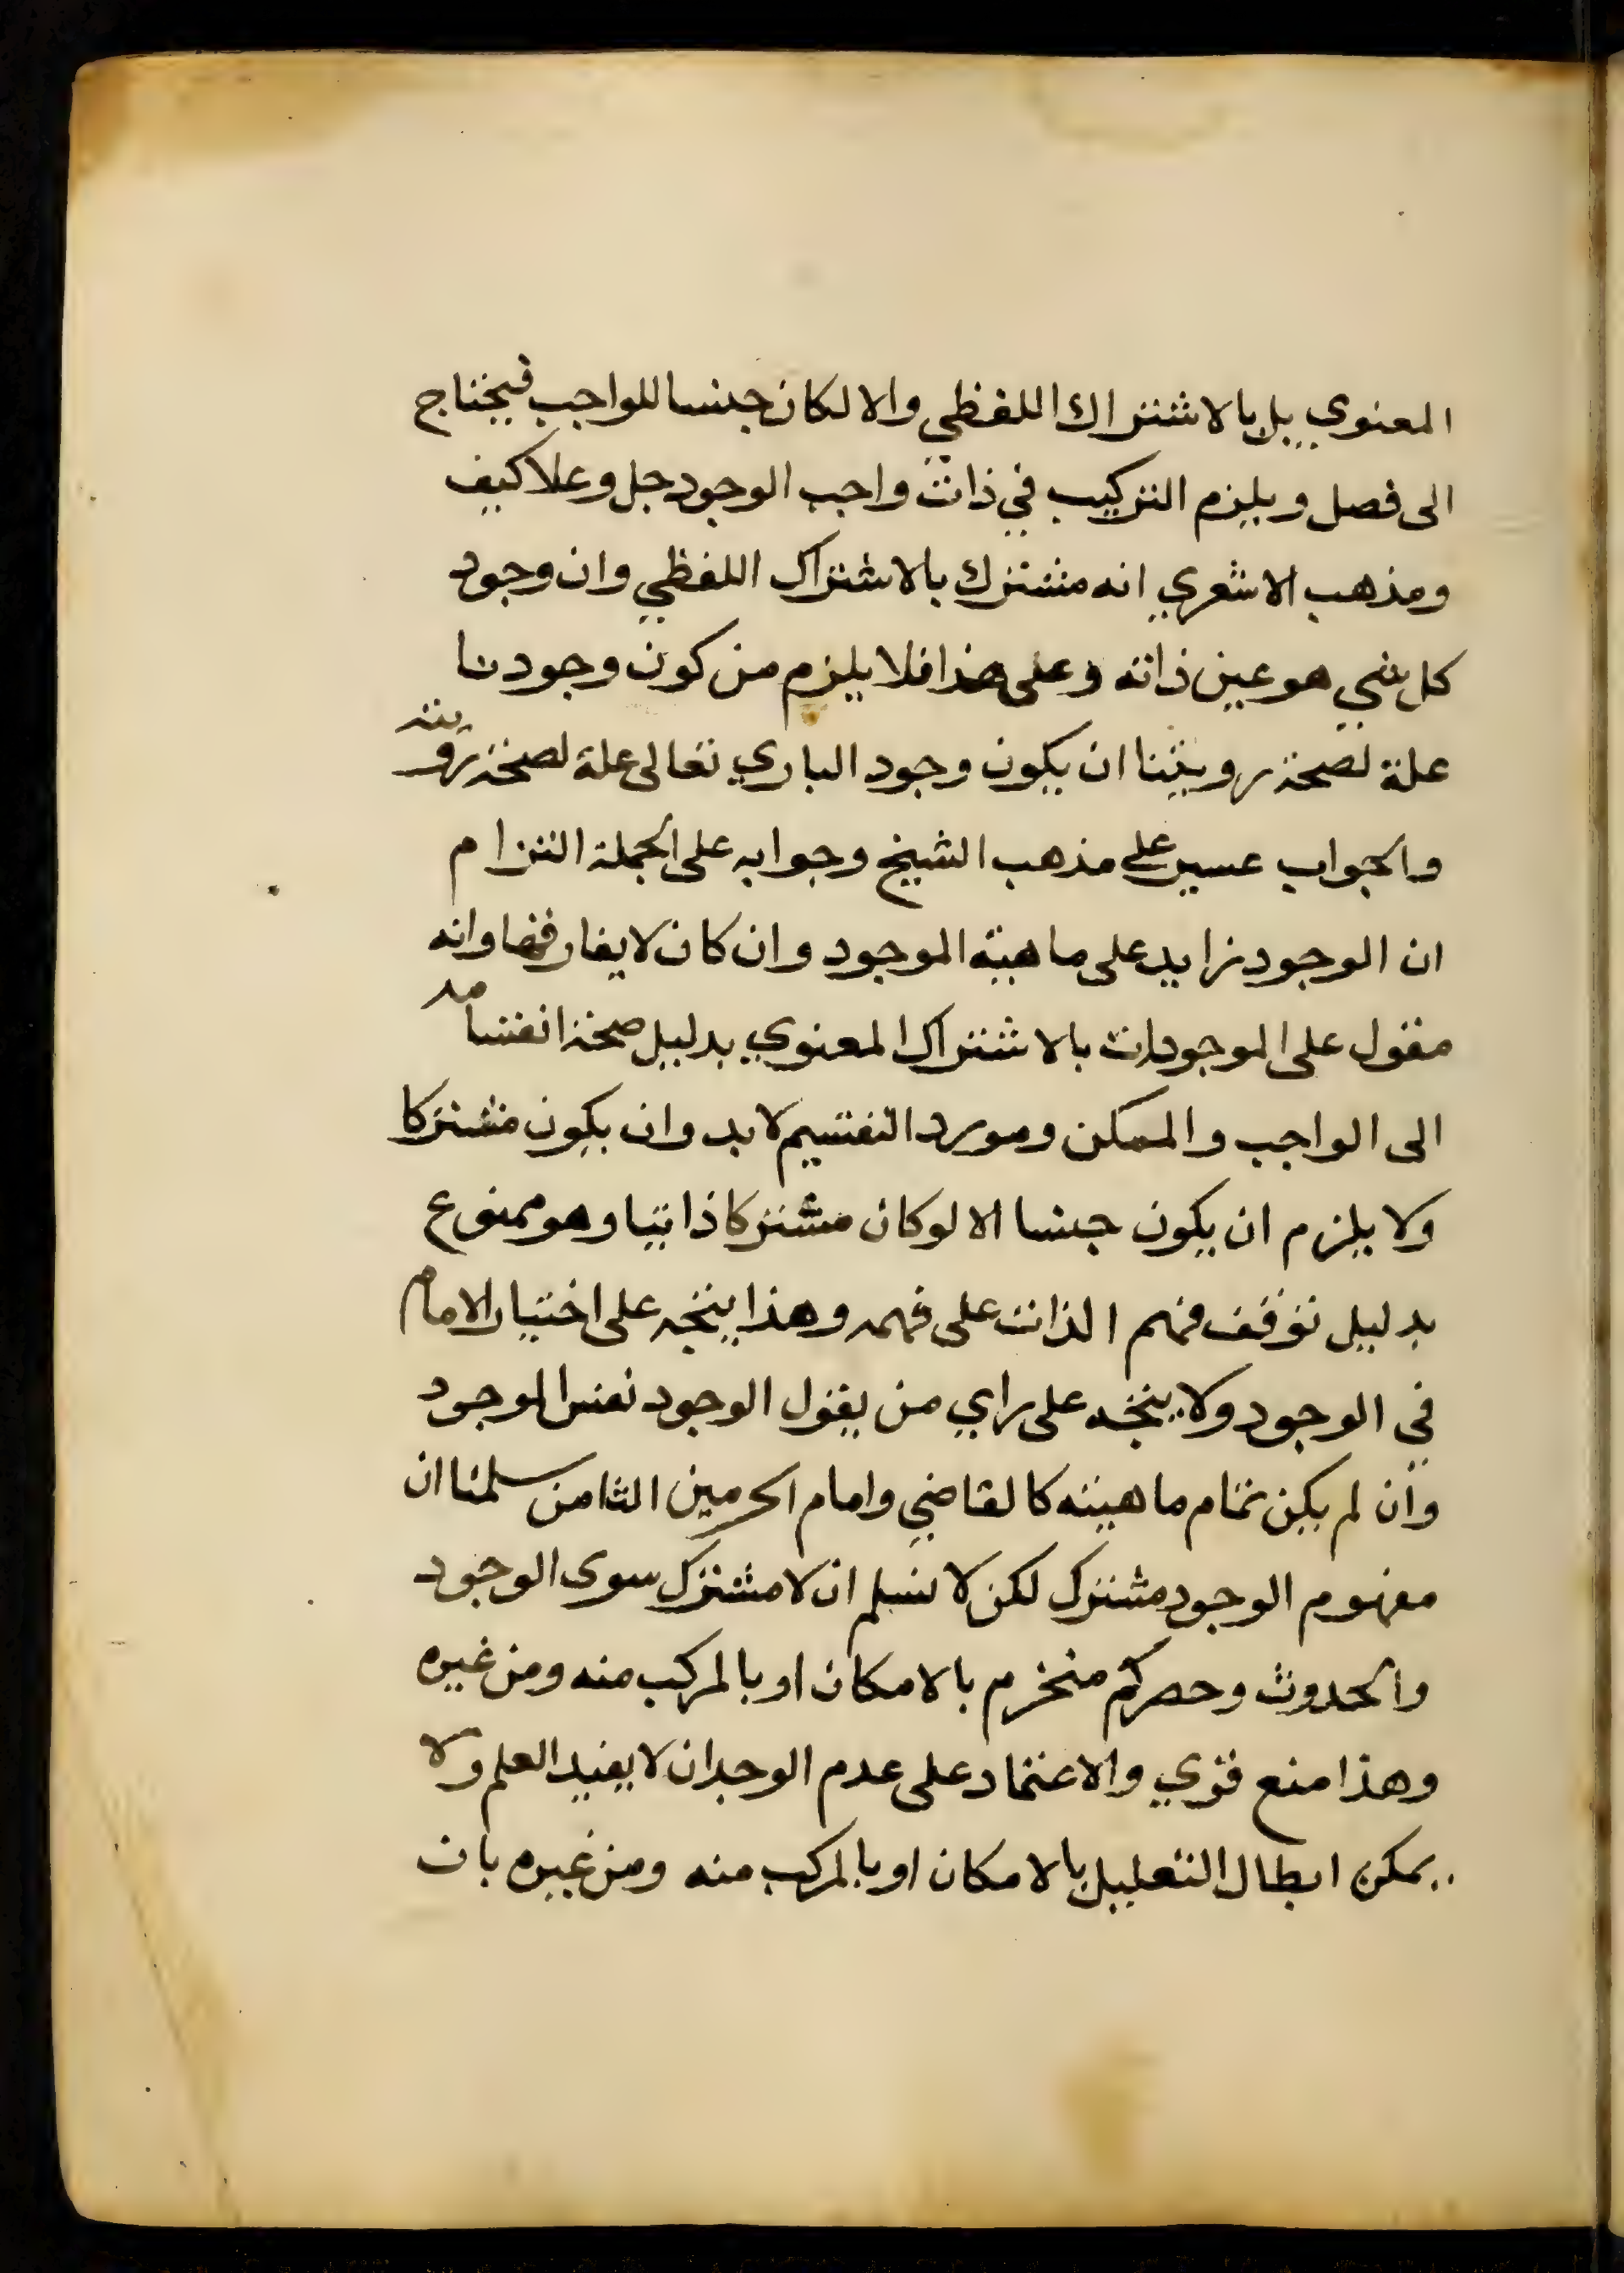 المعنوي بل بالاشتراك اللفظي والا لكان جنسا للواجب فيحتاج
الى فصل ويلزم التركيب في ذات واجب الوجود جل وعلا كيف
ومذهب الاشعري انه مشترك بالاشتراك اللفظي وان وجود
كل شي هو عين ذاته وعلى هذا فلا يلزم من كون وجودنا
علة لصحة رويتنا ان يكون وجود الباري تعالى علة لصحة رويته
والجواب عسير على مذهب الشيخ وجوابه على الجملة التزام
ان الوجود زايد على ماهية الموجود وان كان لا يفارقها وانه
مقول على الموجودات بالاشتراك المعنوي بدليل صحة انقسامه
الى الواجب والممكن ومورد التقسيم لا بد وان يكون مشتركا
ولا يلزم ان يكون جنسا الا لو كان مشتركا ذاتيا وهو ممنوع
بدليل توقف فهم الذات على فهمه وهذا يتجه على اختيار الامام
في الوجود ولا يتجه على راي من يقول الوجود نفس الموجود
وان لم يكن تمام ماهيته كالقاضي وامام الحرمين الثامن سلمنا ان
مفهوم الوجود مشترك لكن لا نسلم ان لا مشترك سوى الوجود
والحدوث وحصركم منخرم بالامكان او بالمركب منه ومن غيره
وهذا منع قوي والاعتماد على عدم الوجدان لا يفيد العلم ولا
يمكن ابطال التعليل بالامكان او بالمركب منه ومن غيره بان